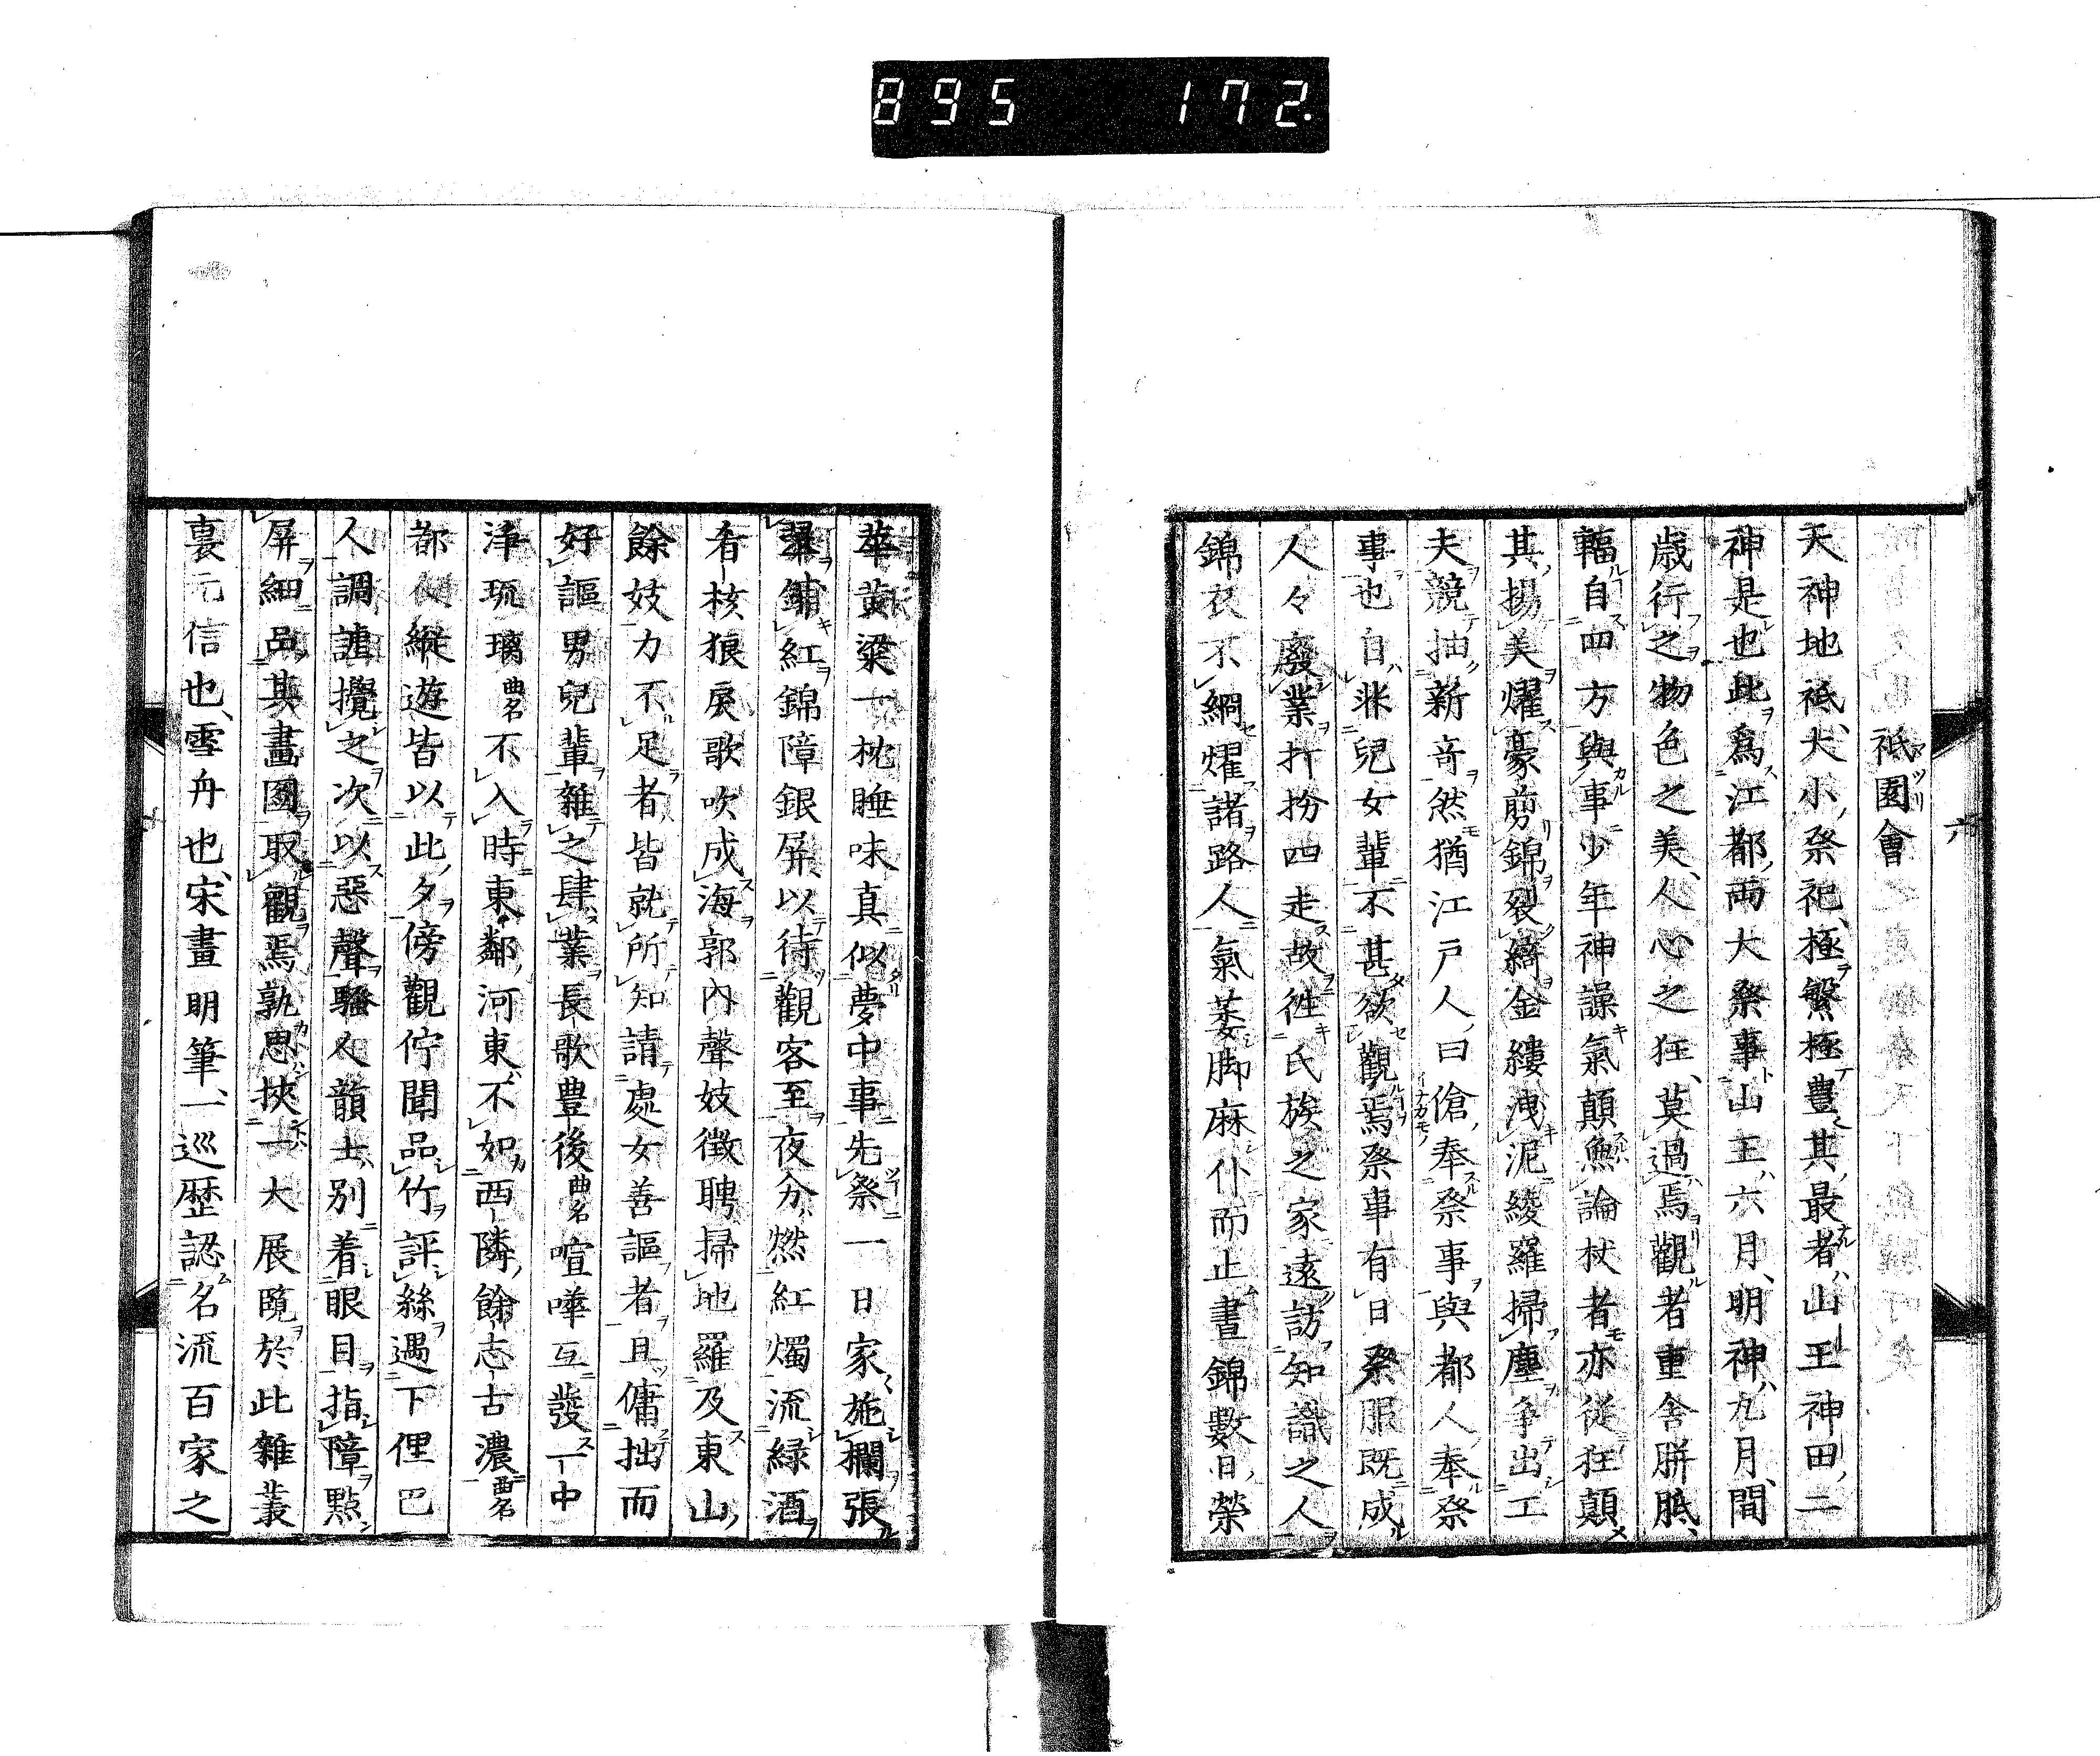 895 172.
六
祗園會
天神地祗、大小祭祀、極繁極豊其最者山王神田二
神是也此爲江都両大祭事山王六月、明神九月、間
歳行之物色之美、人心之狂、莫過焉觀者重舎胼胝、
輻自四方與事少年神譟氣顛無論杖者亦從狂顛
其揚美燿豪剪錦裂綺金縷洩泥綾羅掃塵争出工
夫競抽新竒然猶江戸人曰傖奉祭事與都人奉祭
事也自非兒女輩不甚欲觀焉祭事有日祭服既成
人々廢業打扮四走故徃氏族之家遠訪知識之人
錦衣不綱燿諸路人氣萎脚麻仆而止晝錦數日榮
華黄粱一枕睡味真似夢中事先祭一日家施欄張
翠鋪紅錦障銀屏以待觀客至夜分燃紅燭流緑酒
肴核狼戻歌吹成海郭内聲妓徴聘掃地羅及東山
餘妓力不足者皆就所知請處女善謳者且傭拙而
好謳男兒輩雜之肆業長歌豊後曲名喧嘩互發一中
浄琉璃曲名不入時東鄰河東不如西隣餘志古濃曲名
都人縦遊皆以此夕傍觀佇聞品竹評絲遇下俚巴
人調謔攪之次以惡聲騷人韻士別着眼目指障點
屏細品其畫圖取觀焉孰思挾一大展覧於此雜叢
裏元信也、雪舟也、宋畫明筆、一巡歴認名流百家之